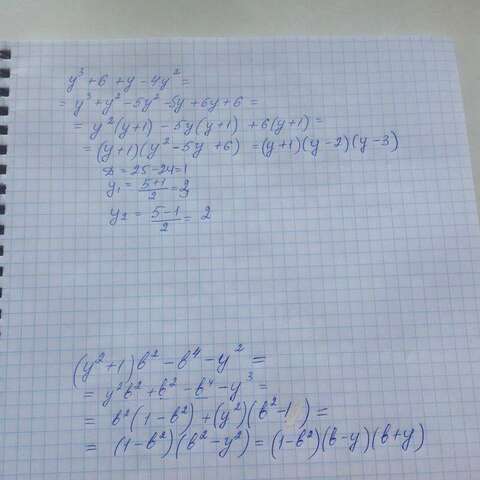 y³ + 6 + y - 4y² =
= y³ + y² - 5y² - 5y + 6y + 6 =
= y²(y+1) - 5y(y+1) + 6(y+1) =
= (y+1)(y² - 5y + 6) = (y+1)(y-2)(y-3)
D = 25 - 24 = 1
y₁ = (5+1)/2 = 3
y₂ = (5-1)/2 = 2
(y² + 1)b² - b⁴ - y² =
= y²b² + b² - b⁴ - y³ =
= b²(1 - b²) + (y²)(b² - 1) =
= (1 - b²)(b² - y²) = (1 - b²)(b - y)(b + y)